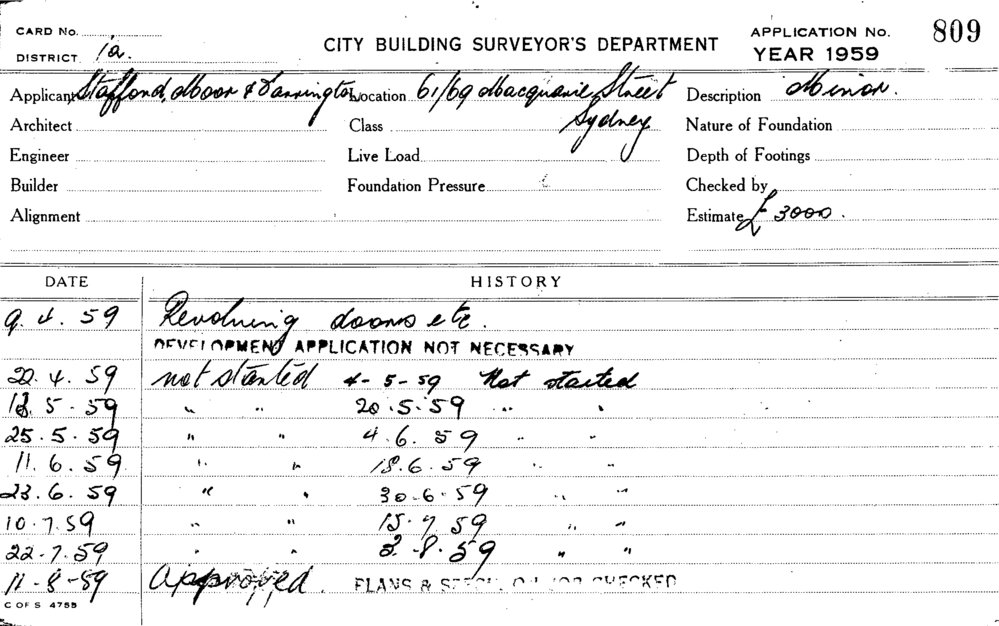 CARD No.
DISTRICT 1a.
CITY BUILDING SURVEYOR'S DEPARTMENT
APPLICATION No. 809
YEAR 1959
Applicant Stafford, Moor & Farrington Location 61/69 Macquarie Street Description Minor.
Architect Class Sydney Nature of Foundation
Engineer Live Load Depth of Footings
Builder Foundation Pressure Checked by
Alignment Estimate £ 3000.
DATE HISTORY
9. 4. 59 Revolving doors etc.
DEVELOPMENT APPLICATION NOT NECESSARY
4. 59 not started 4-5-59 Not started
5. 59 " " 20.5.59 " "
25.5.59 " " 4.6.59 " "
11.6.59 " " 18.6.59 " "
23.6.59 " " 30-6-59 " "
10.7.59 " " 15.7.59 " "
22.7.59 " " 3-8-59 " "
11-8-59 Approved. PLANS & SPECS. ON JOB CHECKED
C OF S 4755